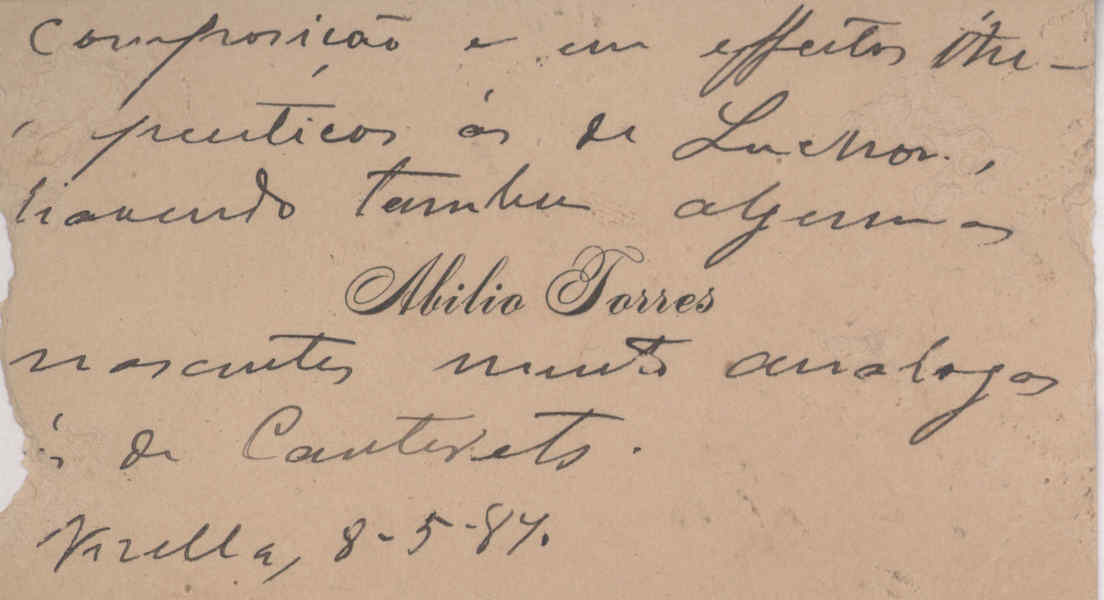 composição e em effeitos the-
rapeuticos ás de Luchon,
havendo tambem algumas
Abilio Torres
nascentes muito analogas
ás de Cauterets.
Vizella, 8-5-84.